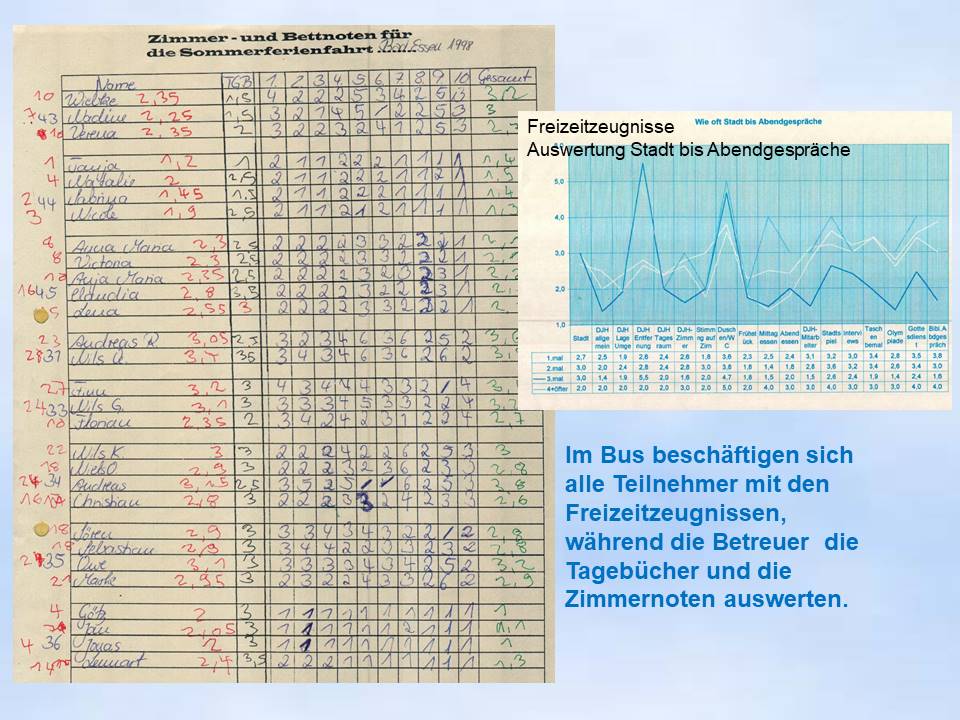 Zimmer - und Bettnoten für
die Sommerferienfahrt ........ Bad Essen 1998
Name TGB 1. 2 3 4 5 6 7 8 9 10 Gesamt
10 Wiebke 2,35 1,5 4 2 2 2 5 3 4 2 5 3 3,2
43 Nadine 2,25 1,5 3 2 1 4 5 / 2 2 5 3 3
Verena 2,35 2 3 2 2 3 2 4 1 2 5 3
1 Tanja 1,2 1 2 1 1 2 2 2 1 1 1 1 1,4
4 Natalie 2 2,5 2 1 1 2 2 2 1 1 2 1 1,5
2 44 Sabrina 1,45 1,5 2 1 1 2 2 2 1 1 1 1 1,4
3 Nicole 1,9 2,5 2 1 1 2 1 2 1 1 1 1 1,3
8 Anna Maria 2,3 2,5 2 2 2 2 3 3 2 2 2 1
8 Victoria 2,3 2,5 2 2 2 2 3 3 2 2 2 1
Anja Maria 2,35 2,5 2 2 2 2 3 2 3 2 3 1
16 45 Claudia 2,8 3,3 2 2 2 2 3 2 2 2 3 1
Lena 2,55 3 2 2 2 2 3 3 2 2 2 1
23 Andreas R. 3,05 2,5 3 2 3 4 6 3 6 2 5 2
31 Nils U. 3,4 3,5 3 4 3 4 6 3 6 2 6 2
27 Finn 3,2 3 4 3 4 4 4 3 3 2 / 4
24 33 Nils G. 3,1 3 3 3 3 4 5 3 3 2 2 4
Florian 2,35 2 3 4 2 4 2 3 1 2 2 4 2,7
22 Nils K 3 3 2 2 2 4 2 2 6 2 5 3 3
18 Niels O. 2,9 3 2 2 2 3 2 3 6 2 3 3 2,8
34 Andreas 3,15 2,5 3 5 2 5 / / 6 2 5 3
Christian 2,8 3 2 2 2 3 3 2 4 2 3 3 2,6
18 Sören 2,9 3 3 3 4 3 4 3 2 2 / 2 2,8
18 Sebastian 2,9 3 3 4 4 2 2 3 2 2 3 2 2,8
35 Uwe 3,1 3 3 3 3 3 4 3 4 2 5 2 3,2
21 Malte 2,95 3 2 3 2 2 4 3 3 2 6 2 2,9
4 Götz 2 3 1 1 1 1 1 1 1 1 1 1 1
Jan 2,05 3 1 1 1 1 1 1 2 1 1 1 1,1
4 36 Jonas 2 3 1 1 1 1 1 1 1 1 1 1 1
Lennart 2,4 3,5 2 2 2 1 1 1 1 1 1 1 1,3
Freizeitzeugnisse
Wie oft Stadt bis Abendgespräche
Auswertung Stadt bis Abendgespräche
5,0
4,0
3,0
2,0
1,0
Stadt DJH allge mein DJH Lage Unge DJH Entfer nung DJH Tages raum DJH- Zimm er Stimm ng auf Zim Dusch en/W C Frühst ück Mittag essen Abend essen DJH- Mitarb eiter Stadts piel Intervi ews Tasch en bemal Olym piade Gotte sdienst t Bibl.A bdges präch
1.mal 2,7 2,5 1,9 2,8 2,4 2,6 1,8 3,6 2,3 2,5 2,4 3,1 3,2 3,3 3,4 2,8 3,5 3,8
2.mal
3.mal
4+öfter 2,0 2,0 2,0 2,0 2,0 2,0 3,0 5,0 2,0 4,0 3,0 3,0 4,0 3,0 4,0 3,0 4,0 4,0
Im Bus beschäftigen sich
alle Teilnehmer mit den
Freizeitzeugnissen,
während die Betreuer die
Tagebücher und die
Zimmernoten auswerten.